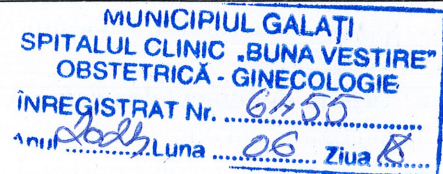 MUNICIPIUL GALAȚI
SPITALUL CLINIC „BUNA VESTIRE”
OBSTETRICĂ - GINECOLOGIE
ÎNREGISTRAT Nr. 6455
Anul Luna 06 Ziua